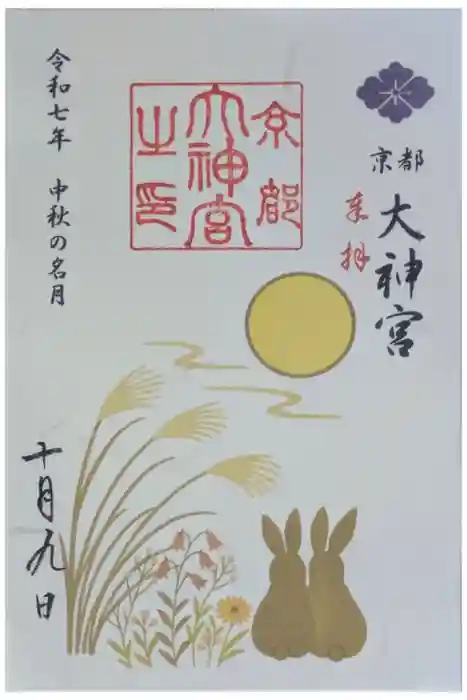 京都
大神宮
奉拝
京都
大神宮
之印
令和七年 中秋の名月
十月九日